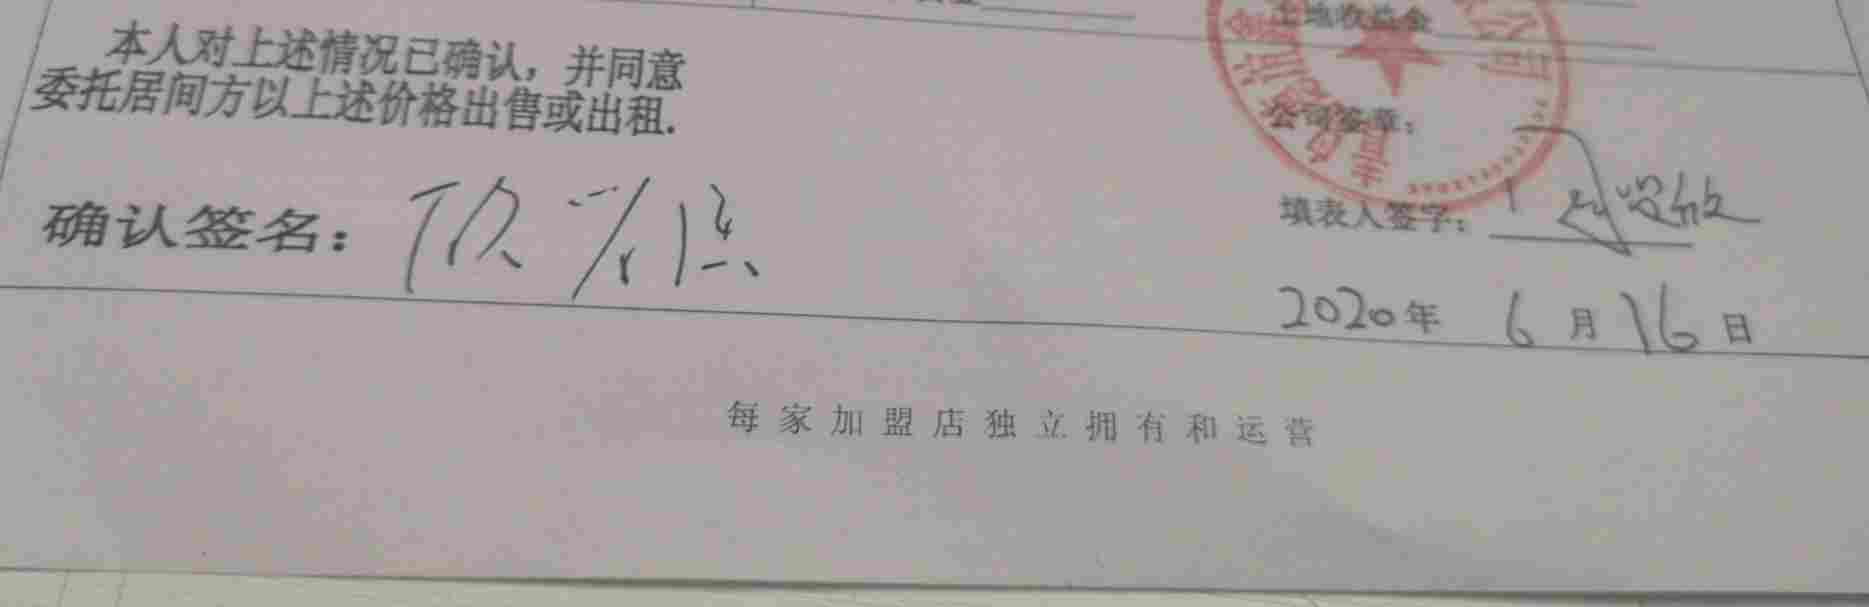 土地收益金
本人对上述情况已确认，并同意
委托居间方以上述价格出售或出租.
公司签章：
确认签名：
填表人签字：
2020年 6月16日
每家加盟店独立拥有和运营